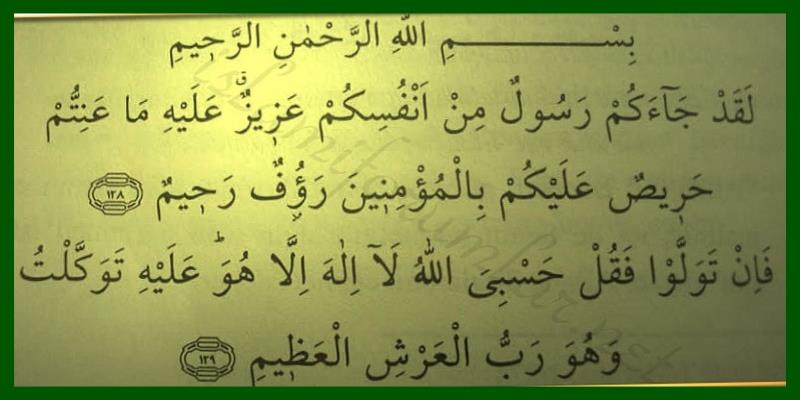 بِسْــــــــــــمِ اللّٰهِ الرَّحْمٰنِ الرَّحٖيمِ
لَقَدْ جَٓاءَكُمْ رَسُولٌ مِنْ اَنْفُسِكُمْ عَزٖيزٌۘ عَلَيْهِ مَا عَنِتُّمْ
حَرٖيصٌ عَلَيْكُمْ بِالْمُؤْمِنٖينَ رَؤُفٌ رَحٖيمٌ ﴿١٢٨﴾
فَاِنْ تَوَلَّوْا فَقُلْ حَسْبِىَ اللّٰهُ لَٓا اِلٰهَ اِلَّا هُوَۜ عَلَيْهِ تَوَكَّلْتُ
وَهُوَ رَبُّ الْعَرْشِ الْعَظٖيمِ ﴿١٢٩﴾